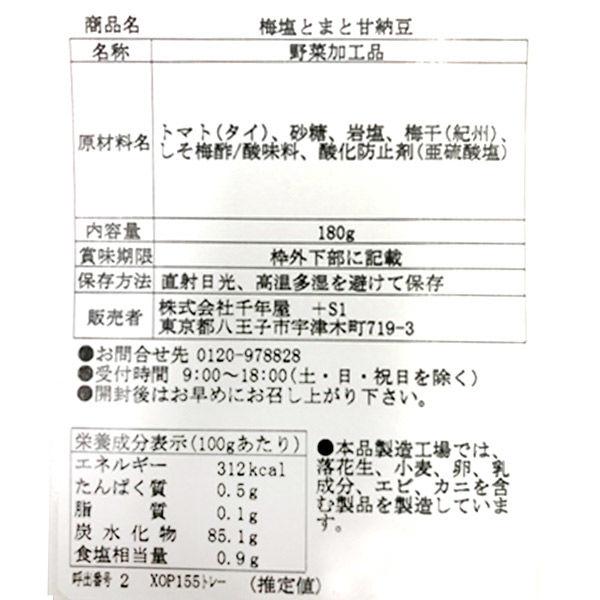 商品名 梅塩とまと甘納豆
名称 野菜加工品
原材料名 トマト(タイ)、砂糖、岩塩、梅干(紀州)、
しそ梅酢/酸味料、酸化防止剤(亜硫酸塩)
内容量 180g
賞味期限 枠外下部に記載
保存方法 直射日光、高温多湿を避けて保存
販売者 株式会社千年屋 +S1
東京都八王子市宇津木町719-3
●お問合せ先 0120-978828
●受付時間 9:00～18:00(土・日・祝日を除く)
●開封後はお早めにお召し上がり下さい。
栄養成分表示(100gあたり)
エネルギー 312kcal
たんぱく質 0.5g
脂質 0.1g
炭水化物 85.1g
食塩相当量 0.9g
呼出番号 2 XOP155トレー (推定値)
●本品製造工場では、
落花生、小麦、卵、乳
成分、エビ、カニを含
む製品を製造していま
す。